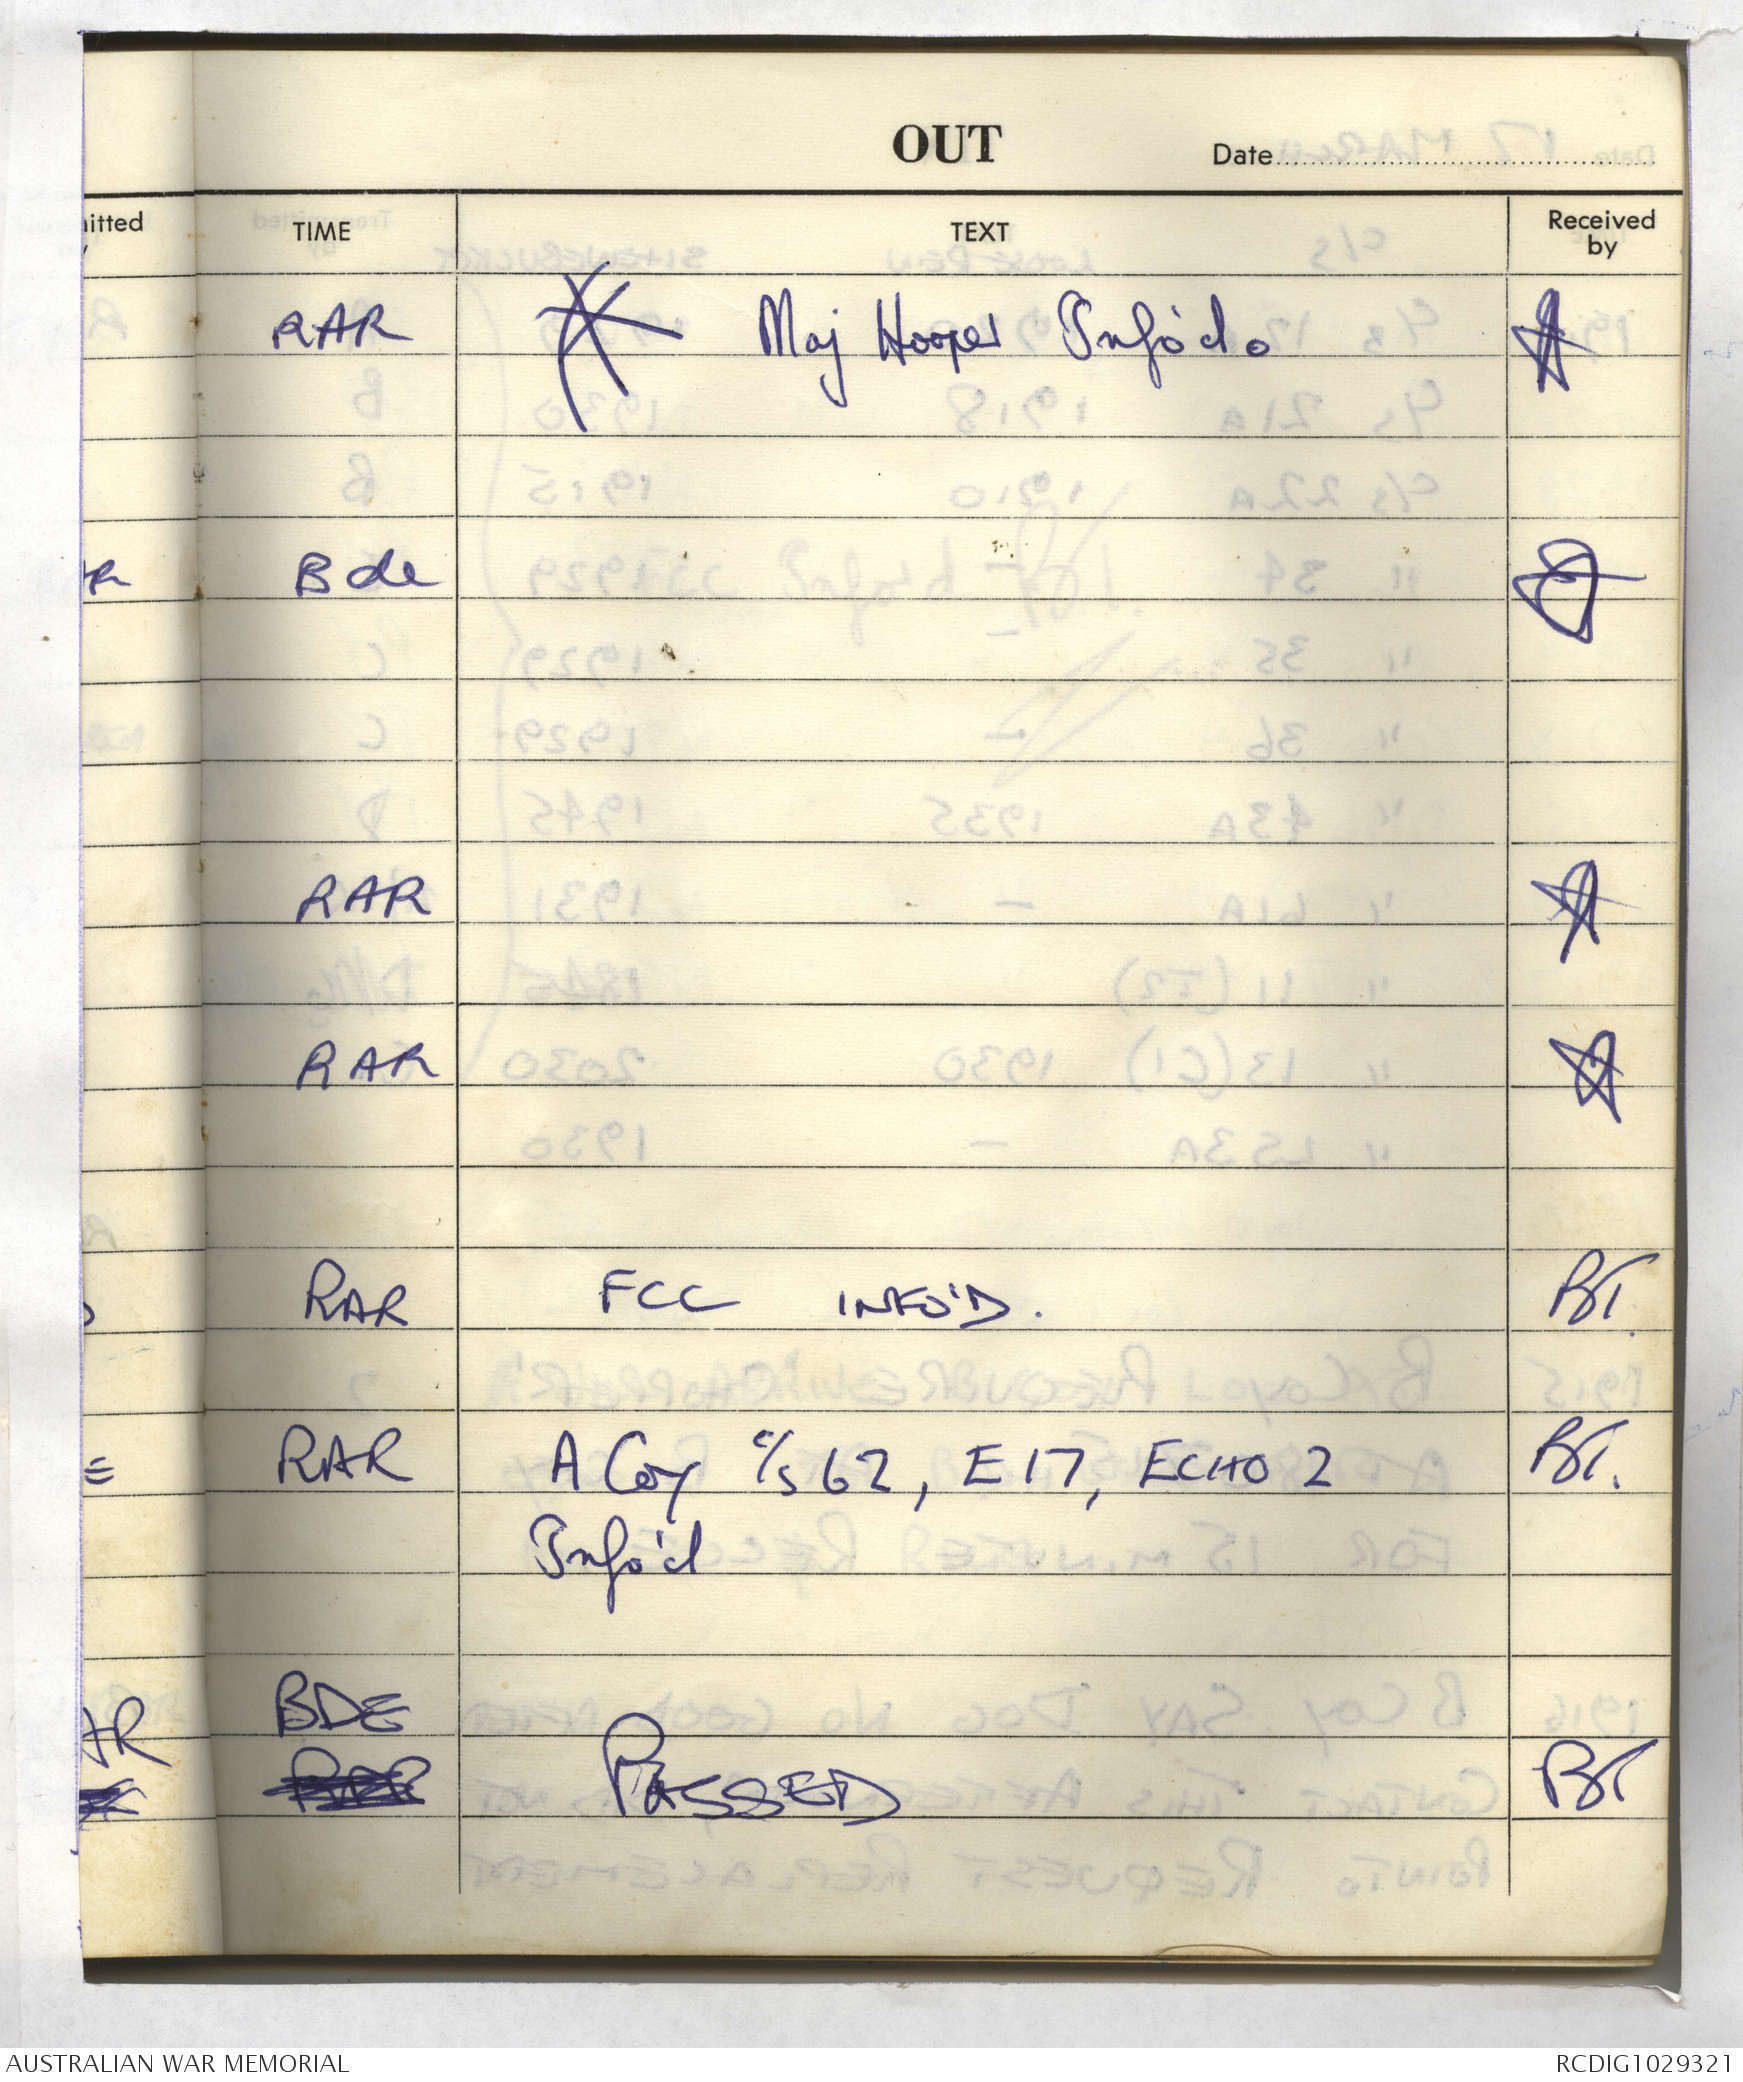 OUT
Date
itted
TIME
TEXT
Received
by
RAR Maj Hooper Info'd.
Bde
RAR
RAR
RAR FCC INFO'D. BT.
RAR A Coy c/s 62, E17, ECHO 2 BT.
Info'd
BDE
RAR PASSED BT
AUSTRALIAN WAR MEMORIAL
RCDIG1029321